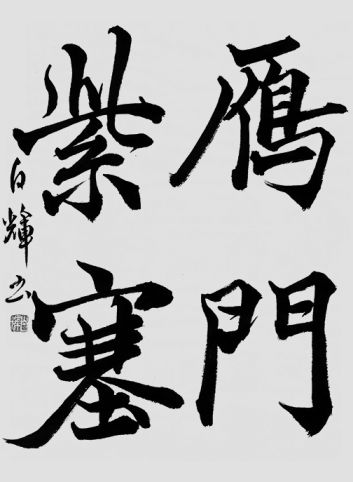 鴈門
紫塞
白輝书